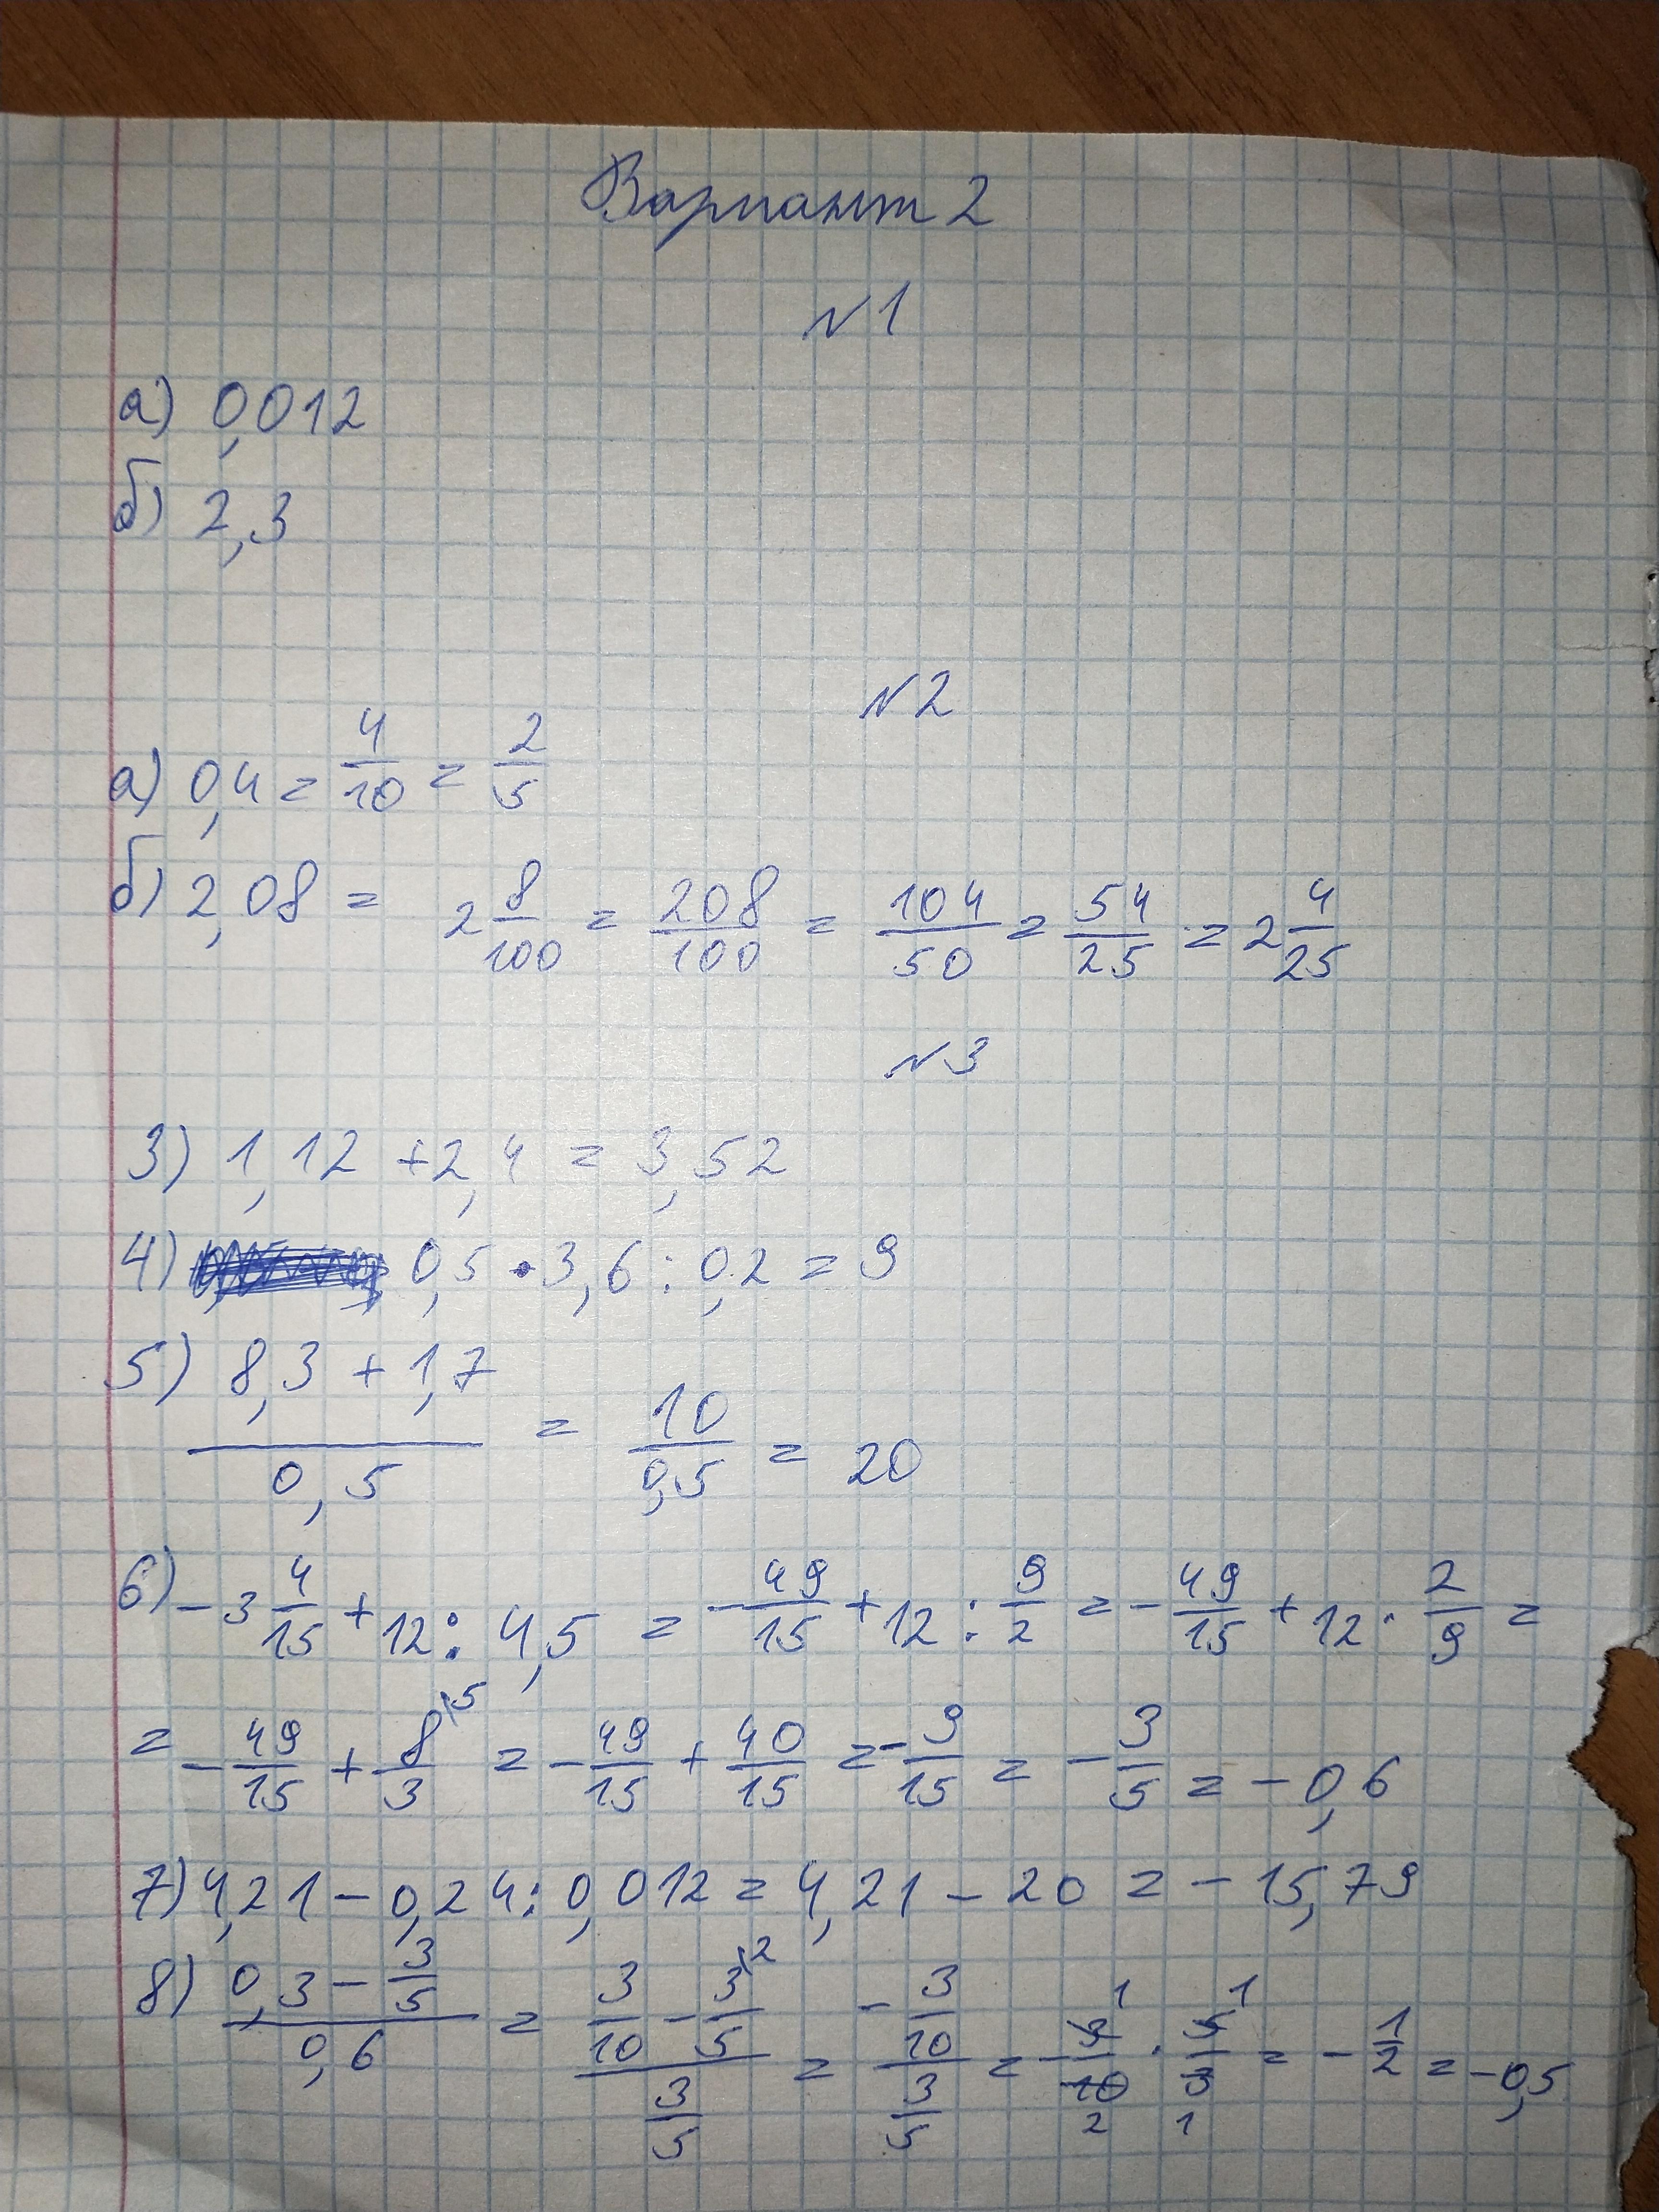 Вариант 2
№1
а) 0,012
б) 2,3
№2
а) 0,4 = 4/10 = 2/5
б) 2,08 = 2 8/100 = 208/100 = 104/50 = 54/25 = 2 4/25
№3
3) 1,12 + 2,4 = 3,52
4) 0,5 · 3,6 : 0,2 = 9
5) (8,3 + 1,7)/(0,5) = 10/0,5 = 20
6) -3 4/15 + 12 : 4,5 = -49/15 + 12 : 9/2 = -49/15 + 12 · 2/9 =
= -49/15 + 8/3 \5 = -49/15 + 40/15 = -9/15 = -3/5 = -0,6
7) 4,21 - 0,24 : 0,012 = 4,21 - 20 = -15,79
8) (0,3 - 3/5)/(0,6) = (3/10 - 3/5 \2)/(3/5) = (-3/10)/(3/5) = -3/10 · 5/3 = -1/2 = -0,5